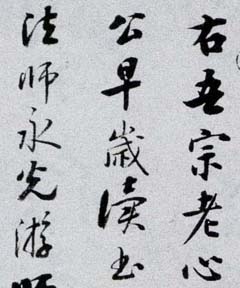 右吾宗老心
公早歲讀書
法師永光游